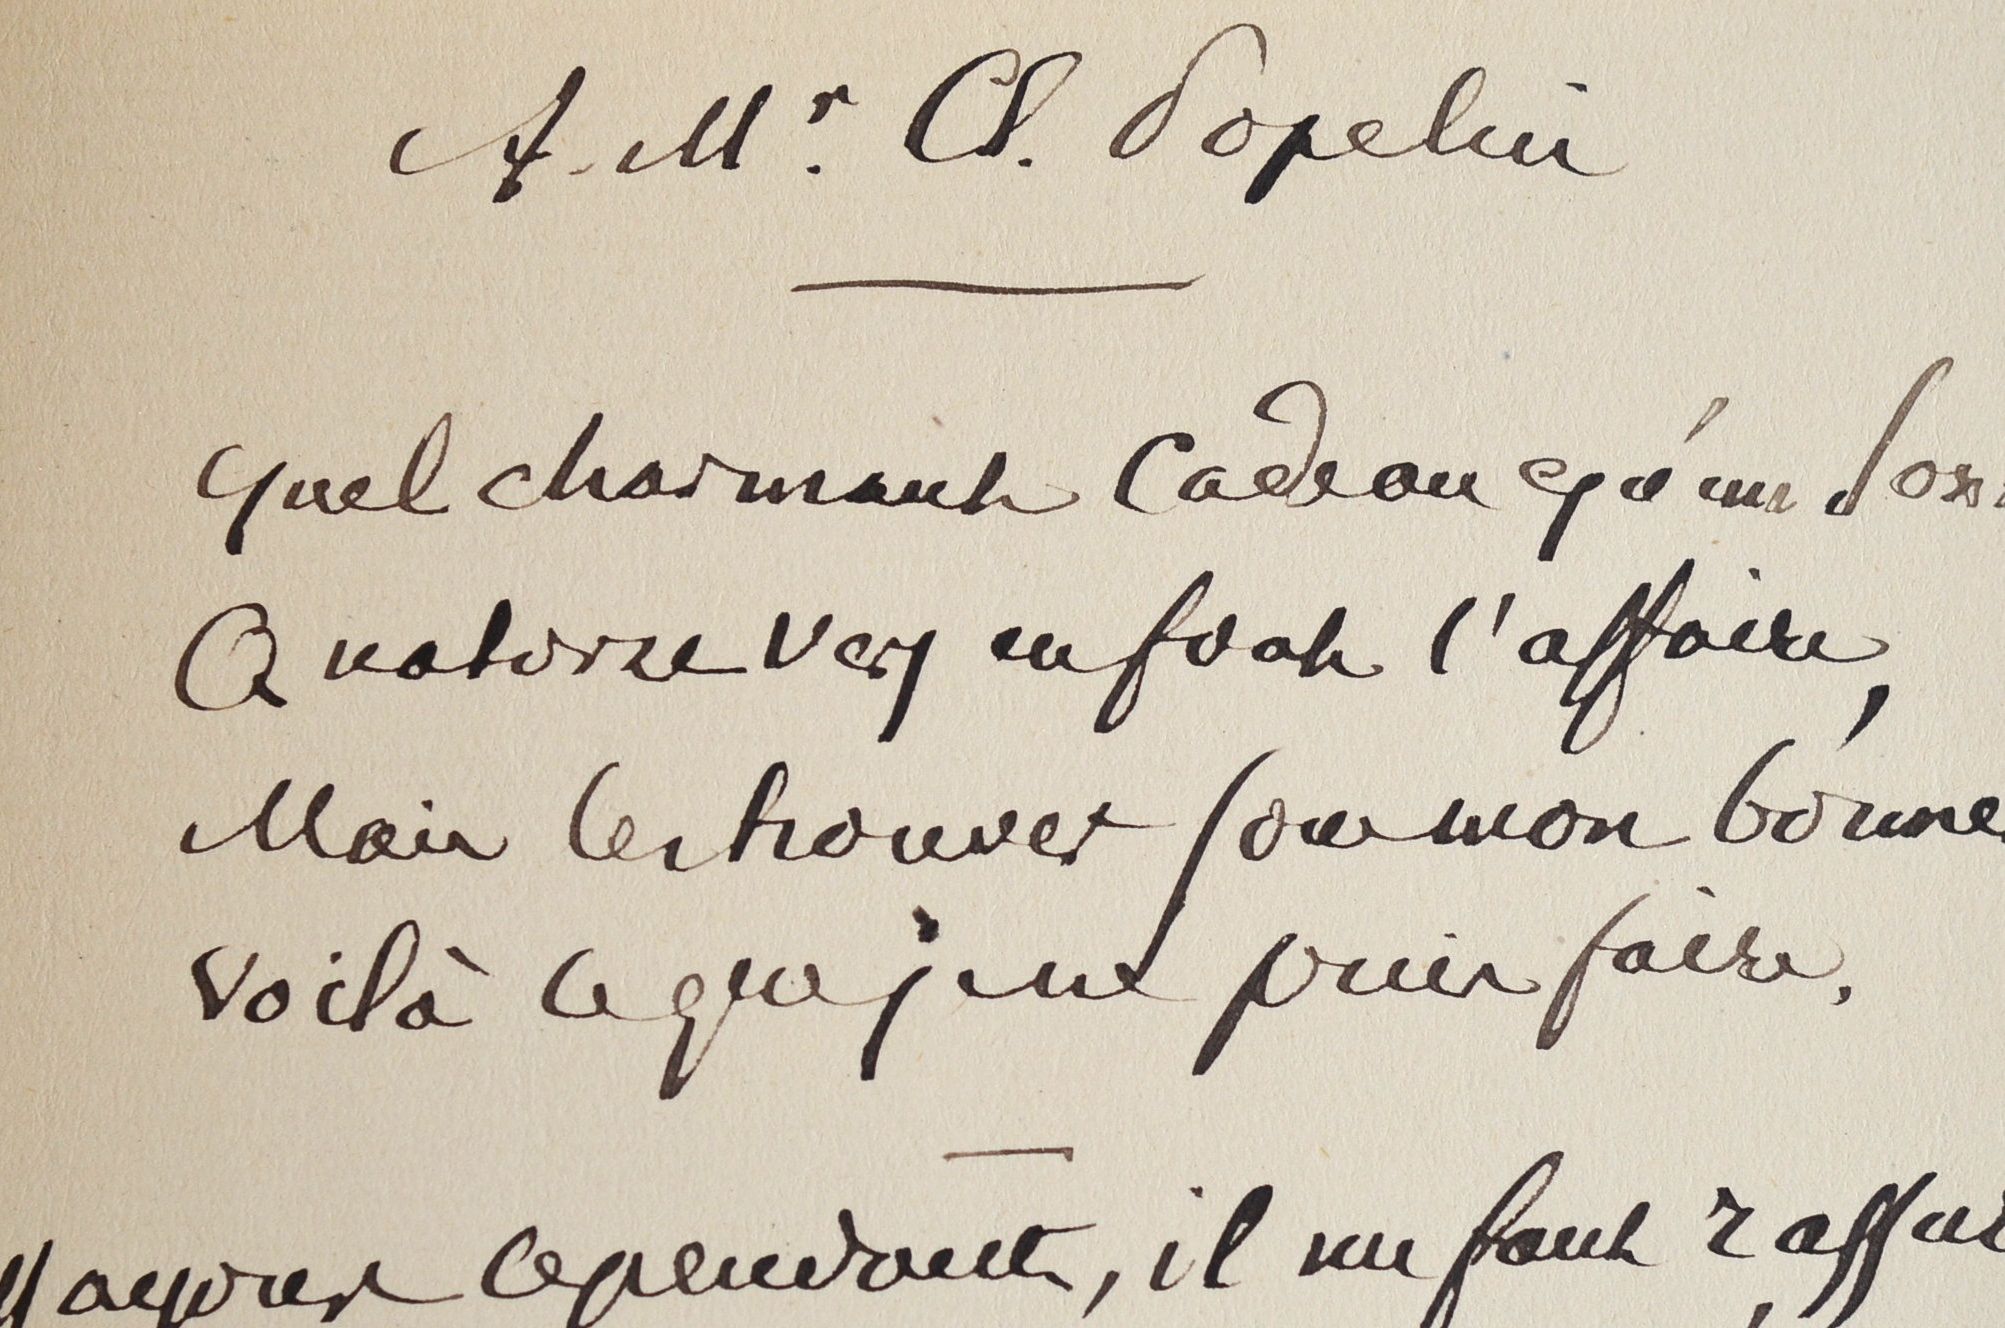 A Mr. Cl. Popelin
Quel charmant Cadeau qu'un Son
Quatorze vers en font l'affaire,
Mais les trouver sous mon bonne
Voilà ce que je ne puis faire.
Essayons cependant, il me faut rassu